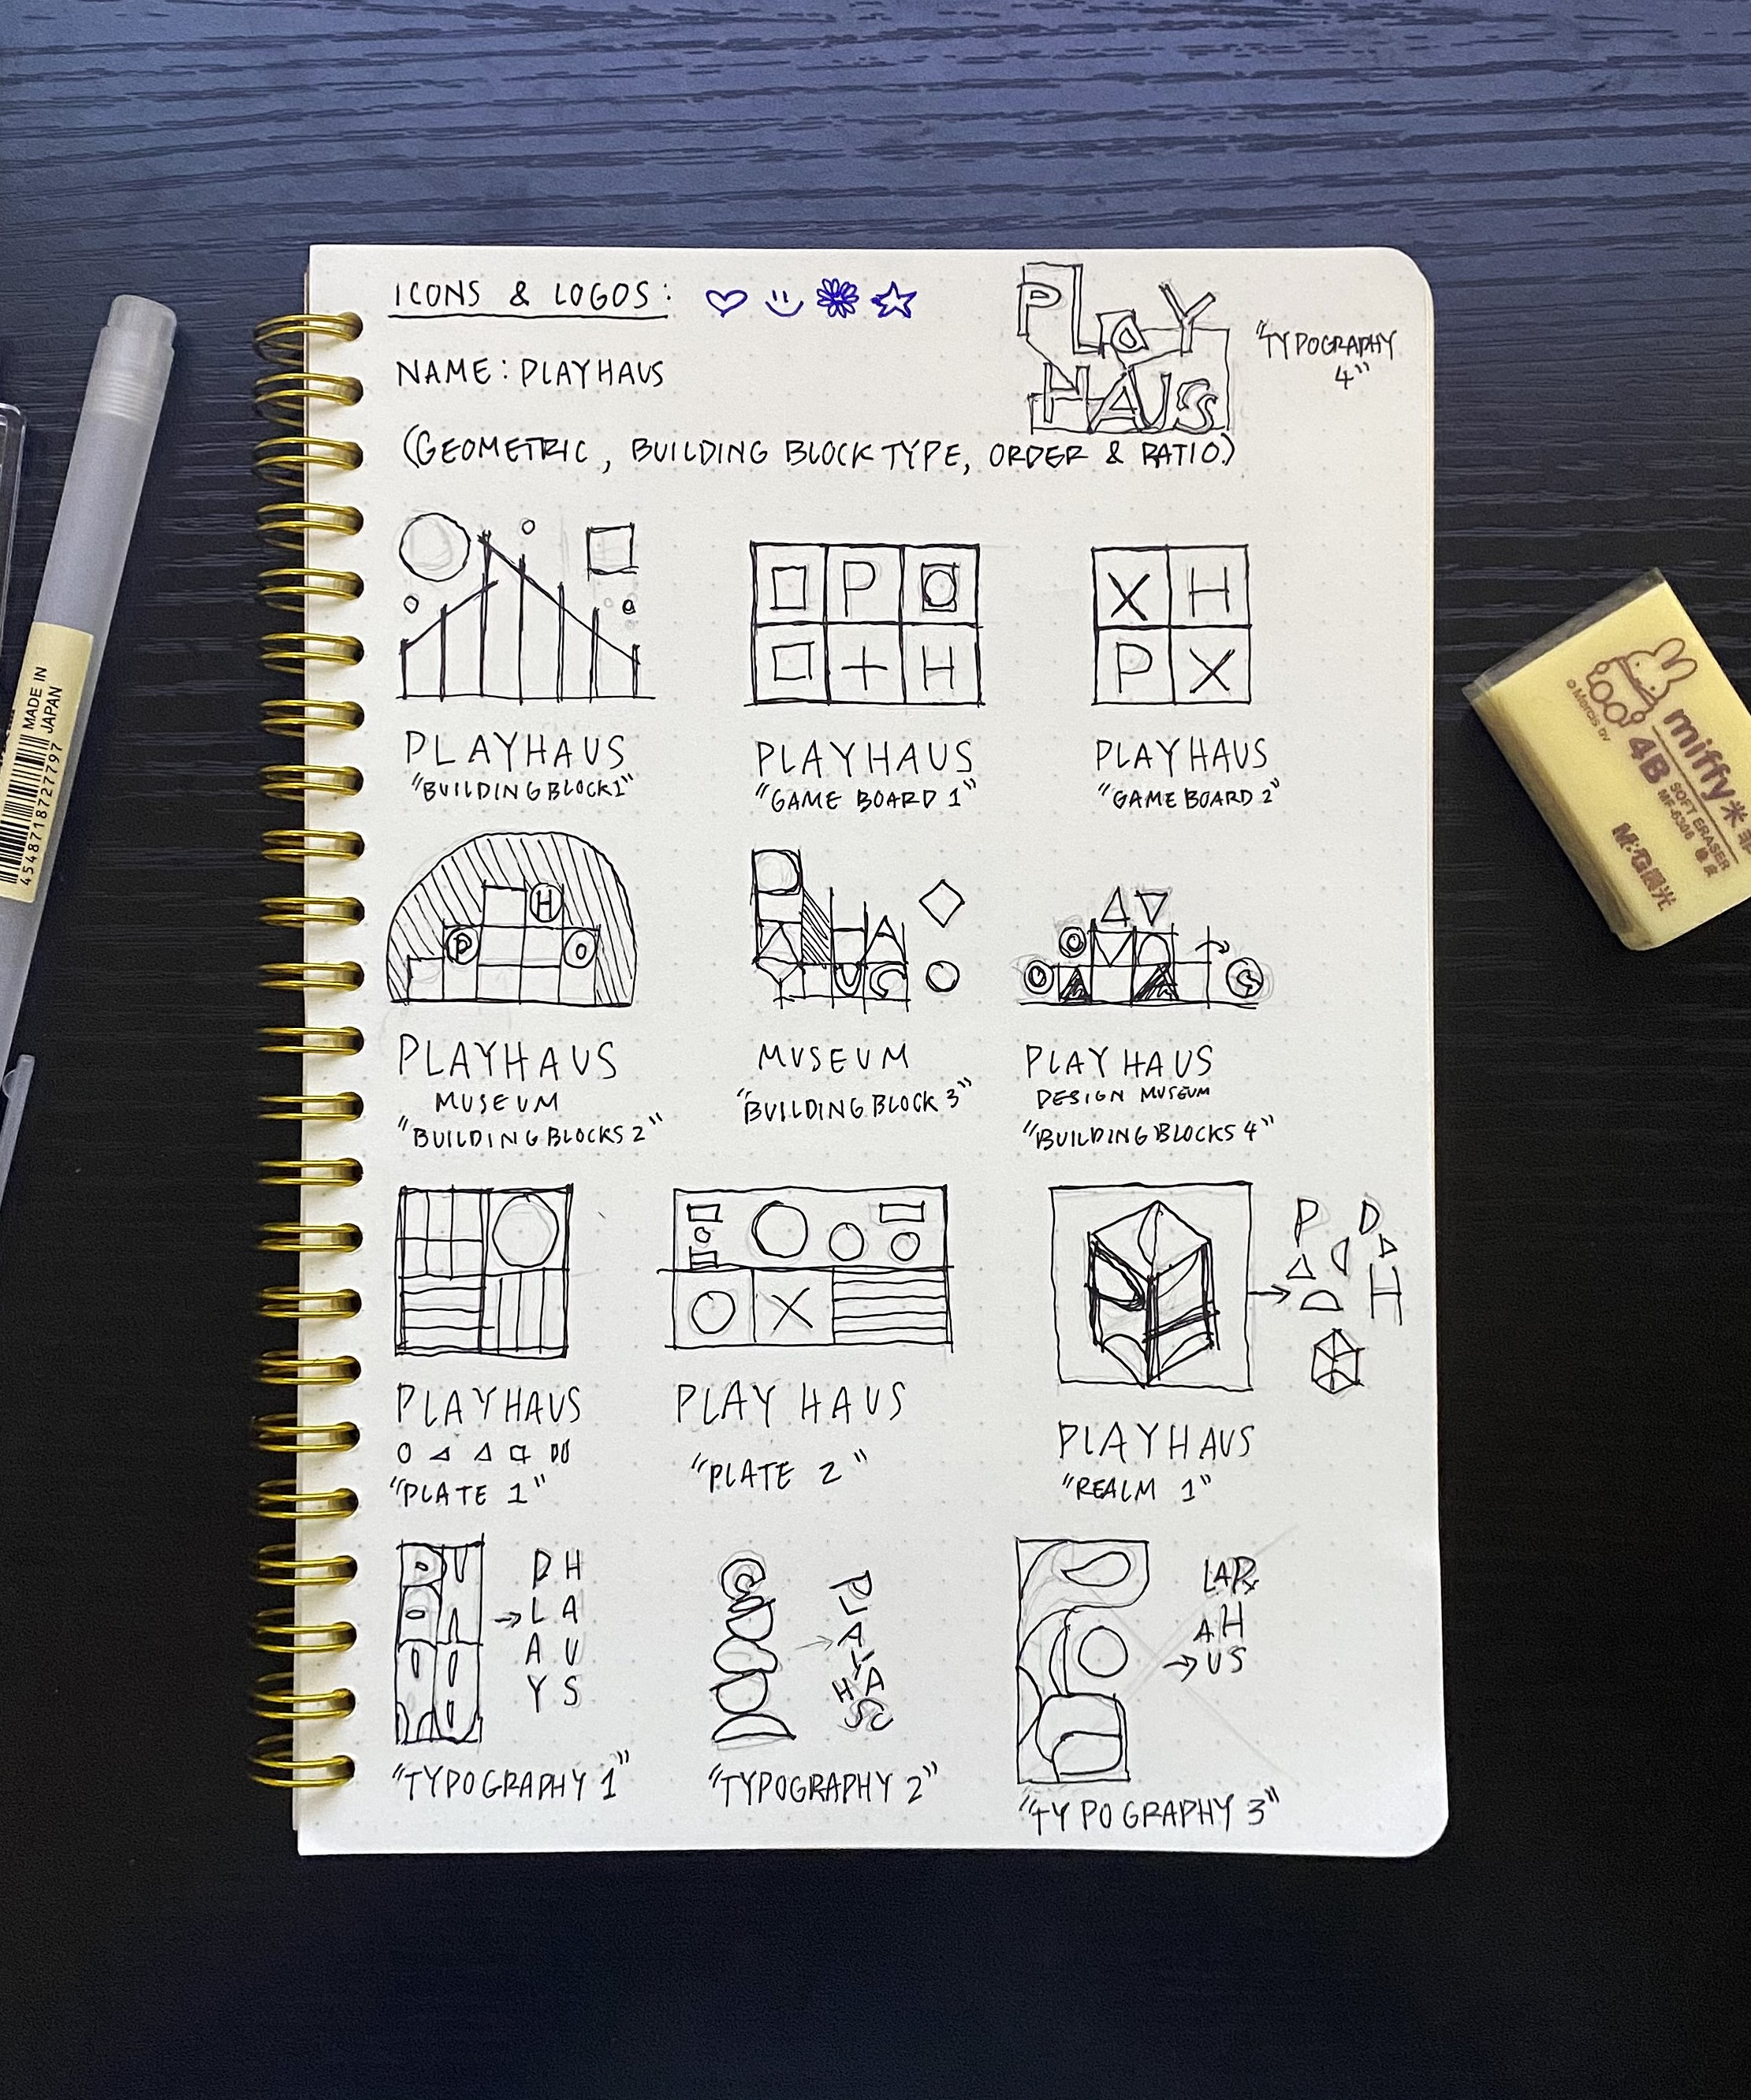 ICONS & LOGOS:
PLaY
HAUS
"TYPOGRAPHY
4"
NAME: PLAYHAUS
(GEOMETRIC, BUILDING BLOCK TYPE, ORDER & RATIO)
P
H
+
X H
P X
PLAYHAUS
"BUILDING BLOCK 1"
PLAYHAUS
"GAME BOARD 1"
PLAYHAUS
"GAME BOARD 2"
H
P O
PLAYHAUS
MUSEUM
"BUILDING BLOCKS 2"
MUSEUM
"BUILDING BLOCK 3"
PLAY HAUS
DESIGN MUSEUM
"BUILDING BLOCKS 4"
X
P D
H
PLAYHAUS
"PLATE 1"
PLAY HAUS
"PLATE 2"
PLAYHAUS
"REALM 1"
P H
L A
A U
Y S
"TYPOGRAPHY 1"
P
L
A
Y
H A
"TYPOGRAPHY 2"
A H
U S
"TYPOGRAPHY 3"
MADE IN
JAPAN
4548718727797
miffy米
4B SOFT ERASER
MF-6306
M&G晨光
© Mercis bv